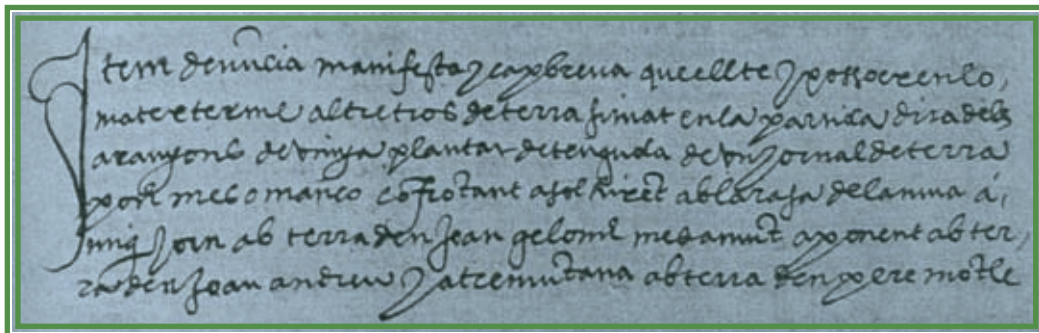 Item denuncia manifesta y capbreva que ell te y posseex en lo
mateix terme altre tros de terra situat en la partida dita dels
aranyons de vinya plantat de tenguda de un jornal de terra
poch mes o manco cofrotant a sol ixet ab la rasa de la
mig jorn ab terra den Joan mes amut a ponent ab ter
ra den Joan andreu y a tremutana ab terra den pere